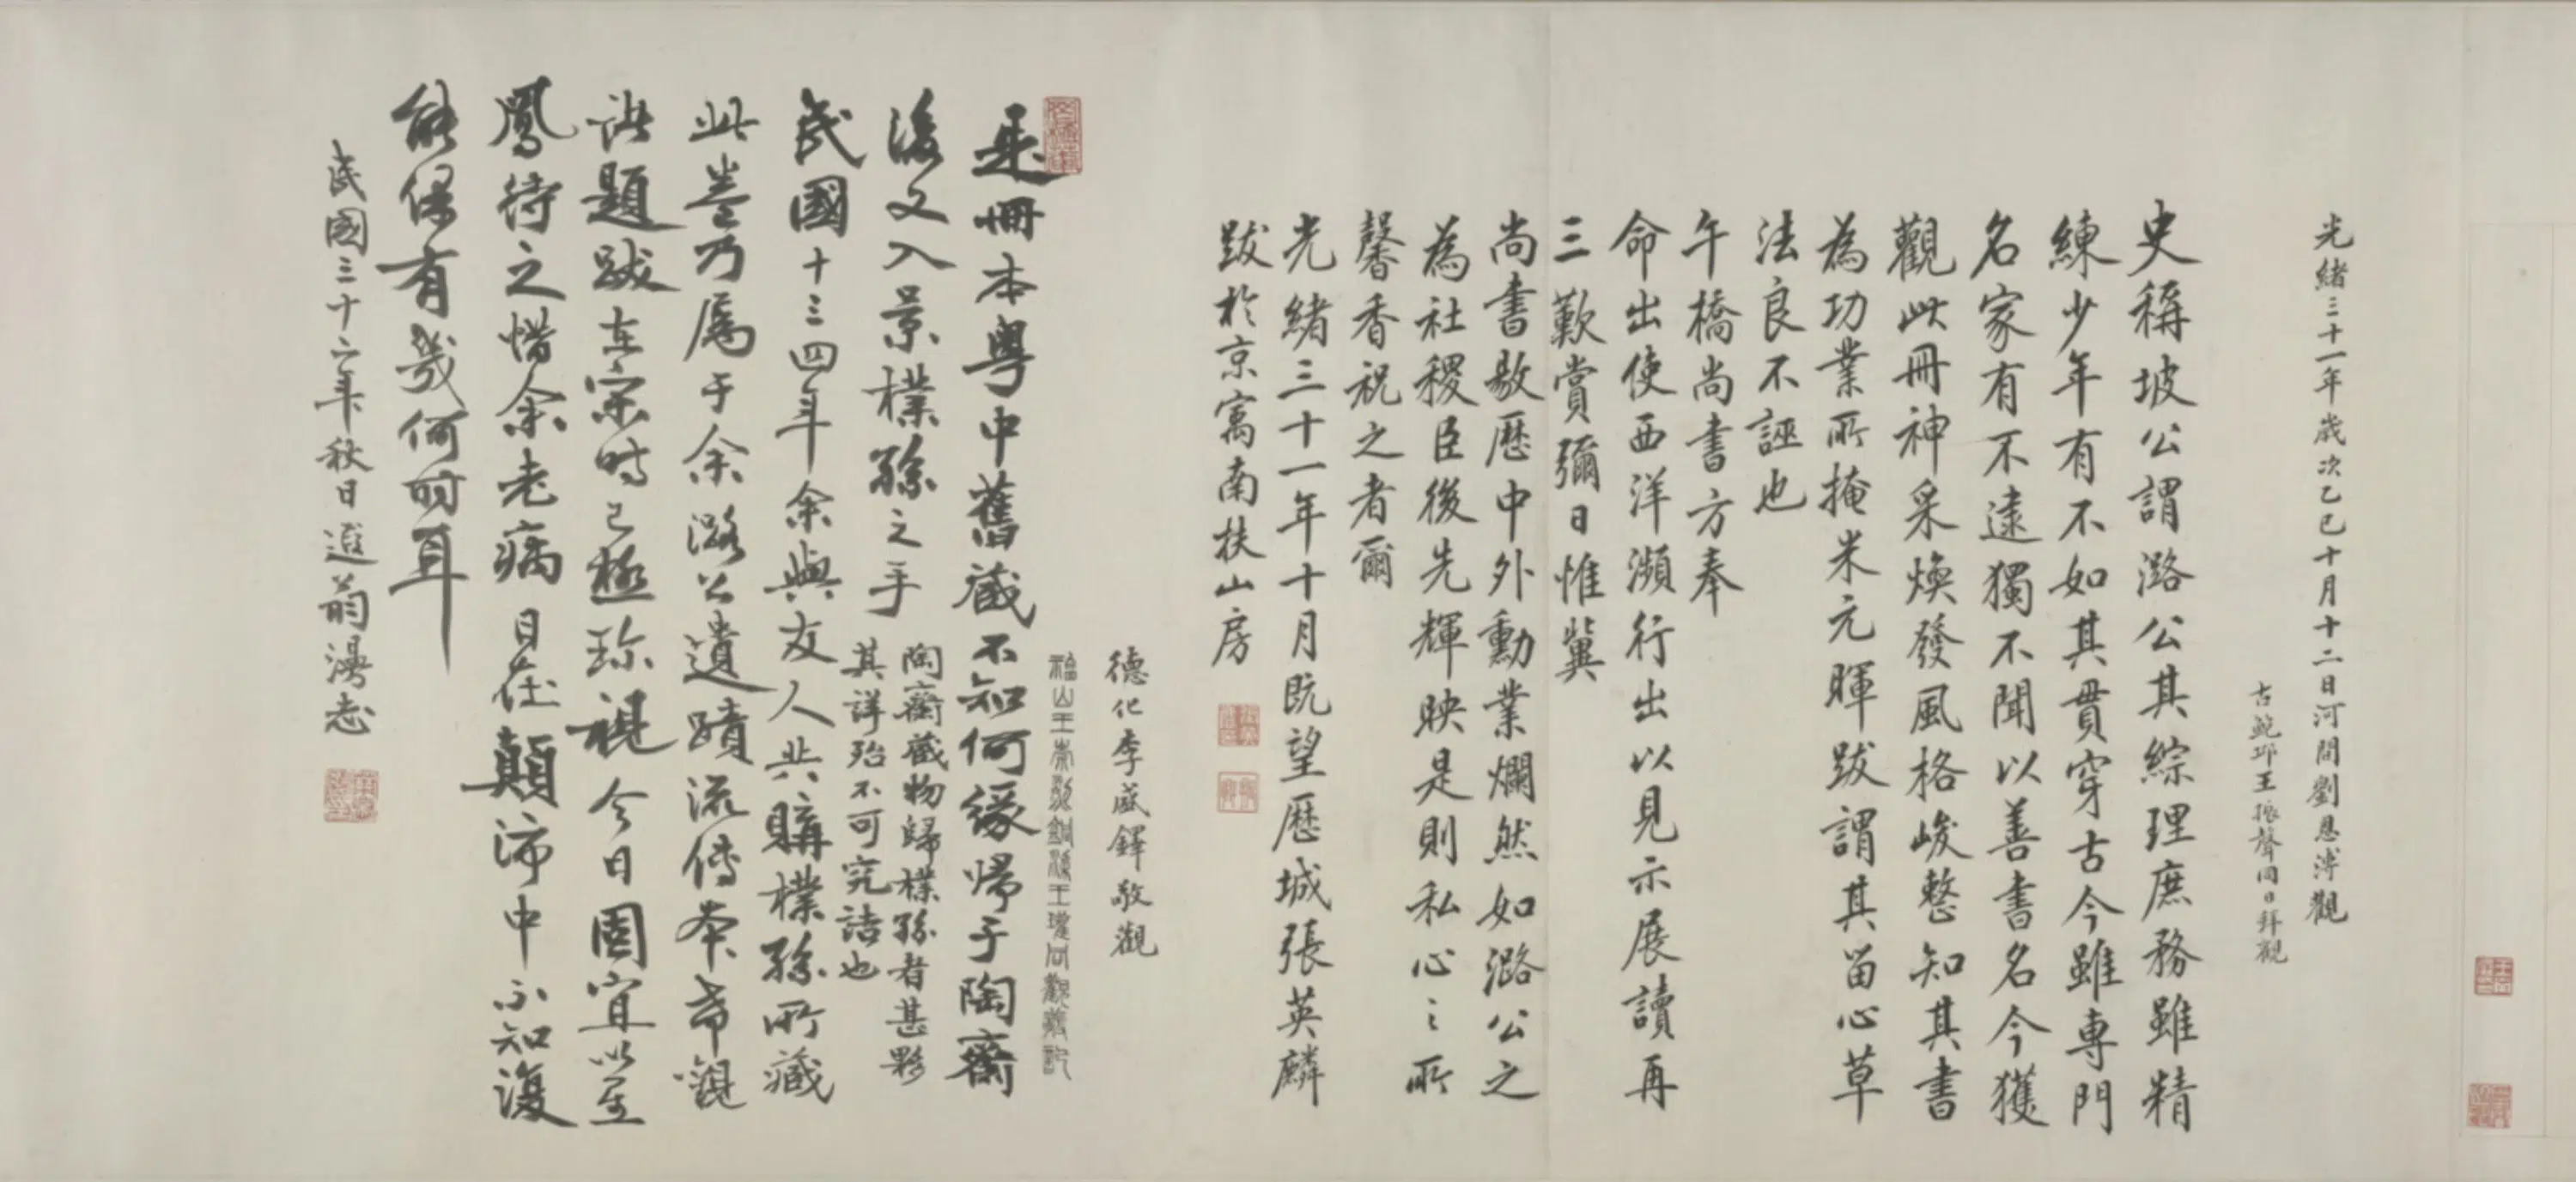 光緒三十一年歲次乙巳十月十二日河間劉恩溥觀
古鮑邱王振聲同日拜觀
史稱坡公謂潞公其綜理庶務雖精
練少年有不如其貫穿古今雖專門
名家有不逮獨不聞以善書名今獲
觀此冊神采煥發風格峻整知其書
為功業所掩米元暉跋謂其留心草
法良不誣也
午橋尚書方奉
命出使西洋瀕行出以見示展讀再
三歎賞彌日惟冀
尚書敭歷中外勳業爛然如潞公之
為社稷臣後先輝映是則私心之所
馨香祝之者爾
光緒三十一年十月既望歷城張英麟
跋於京寓南扶山房
德化李盛鐸敬觀
福山王崇烈銅梁王瓘同觀幷記
是冊本粵中舊藏不知何緣歸于陶齋
後又入景樸孫之手
陶齋藏物歸樸孫者甚夥
其詳殆不可究詰也
民國十三四年余與友人共購樸孫所藏
此卷乃屬于余潞公遺蹟流傳本希覯
諸題跋在宋時已極珍視今日固宜以星
鳳待之惜余老病日在顛沛中不知復
能保有幾何時耳
民國三十六年秋日遐翁漫志